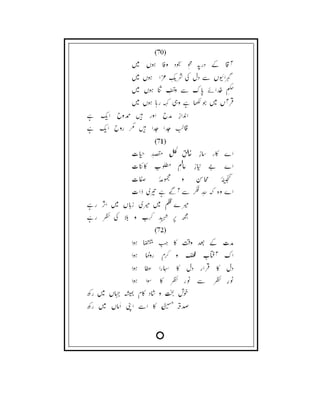 (70)
آقا کے در پہ محو سجود وفا ہوں میں
گہرائیوں سے دل کی شریک عزا ہوں میں
حکم خدائے پاک سے وقف ثنا ہوں میں
قرآں میں جو لکھا ہے وہی کہہ رہا ہوں میں
انداز مدح اور ہیں ممدوح ایک ہے
قالب جدا جدا ہیں مگر روح ایک ہے
(71)
اے کار ساز خالق کل مقصد حیات
اے بے نیاز عالم مطلوب کائنات
گنجینۂ محاسن و مجموعۂ صفات
اے وہ کہ حد فکر سے آگے ہے تیری ذات
میرے قلم میں میری زباں میں اثر رہے
مجھ پر شہید کرب و بلا کی نظر رہے
(72)
مدت کے بعد وقت کا جب اقتضا ہوا
اک آفتاب لطف و کرم رونما ہوا
دل کا قرار دل کا سہارا عطا ہوا
نور نظر سے نور نظر کا سوا ہوا
خوش بخت و شاد کام ہمیشہ جہاں میں رکھ
صدقہ حسین کا اسے اپنی اماں میں رکھ